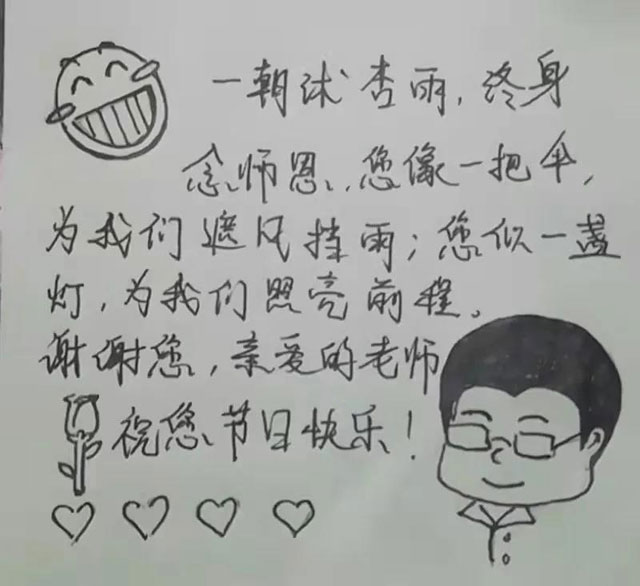 一朝沐杏雨，终身
念师恩、您像一把伞，
为我们遮风挡雨；您似一盏
灯，为我们照亮前程。
谢谢您，亲爱的老师
祝您节日快乐！